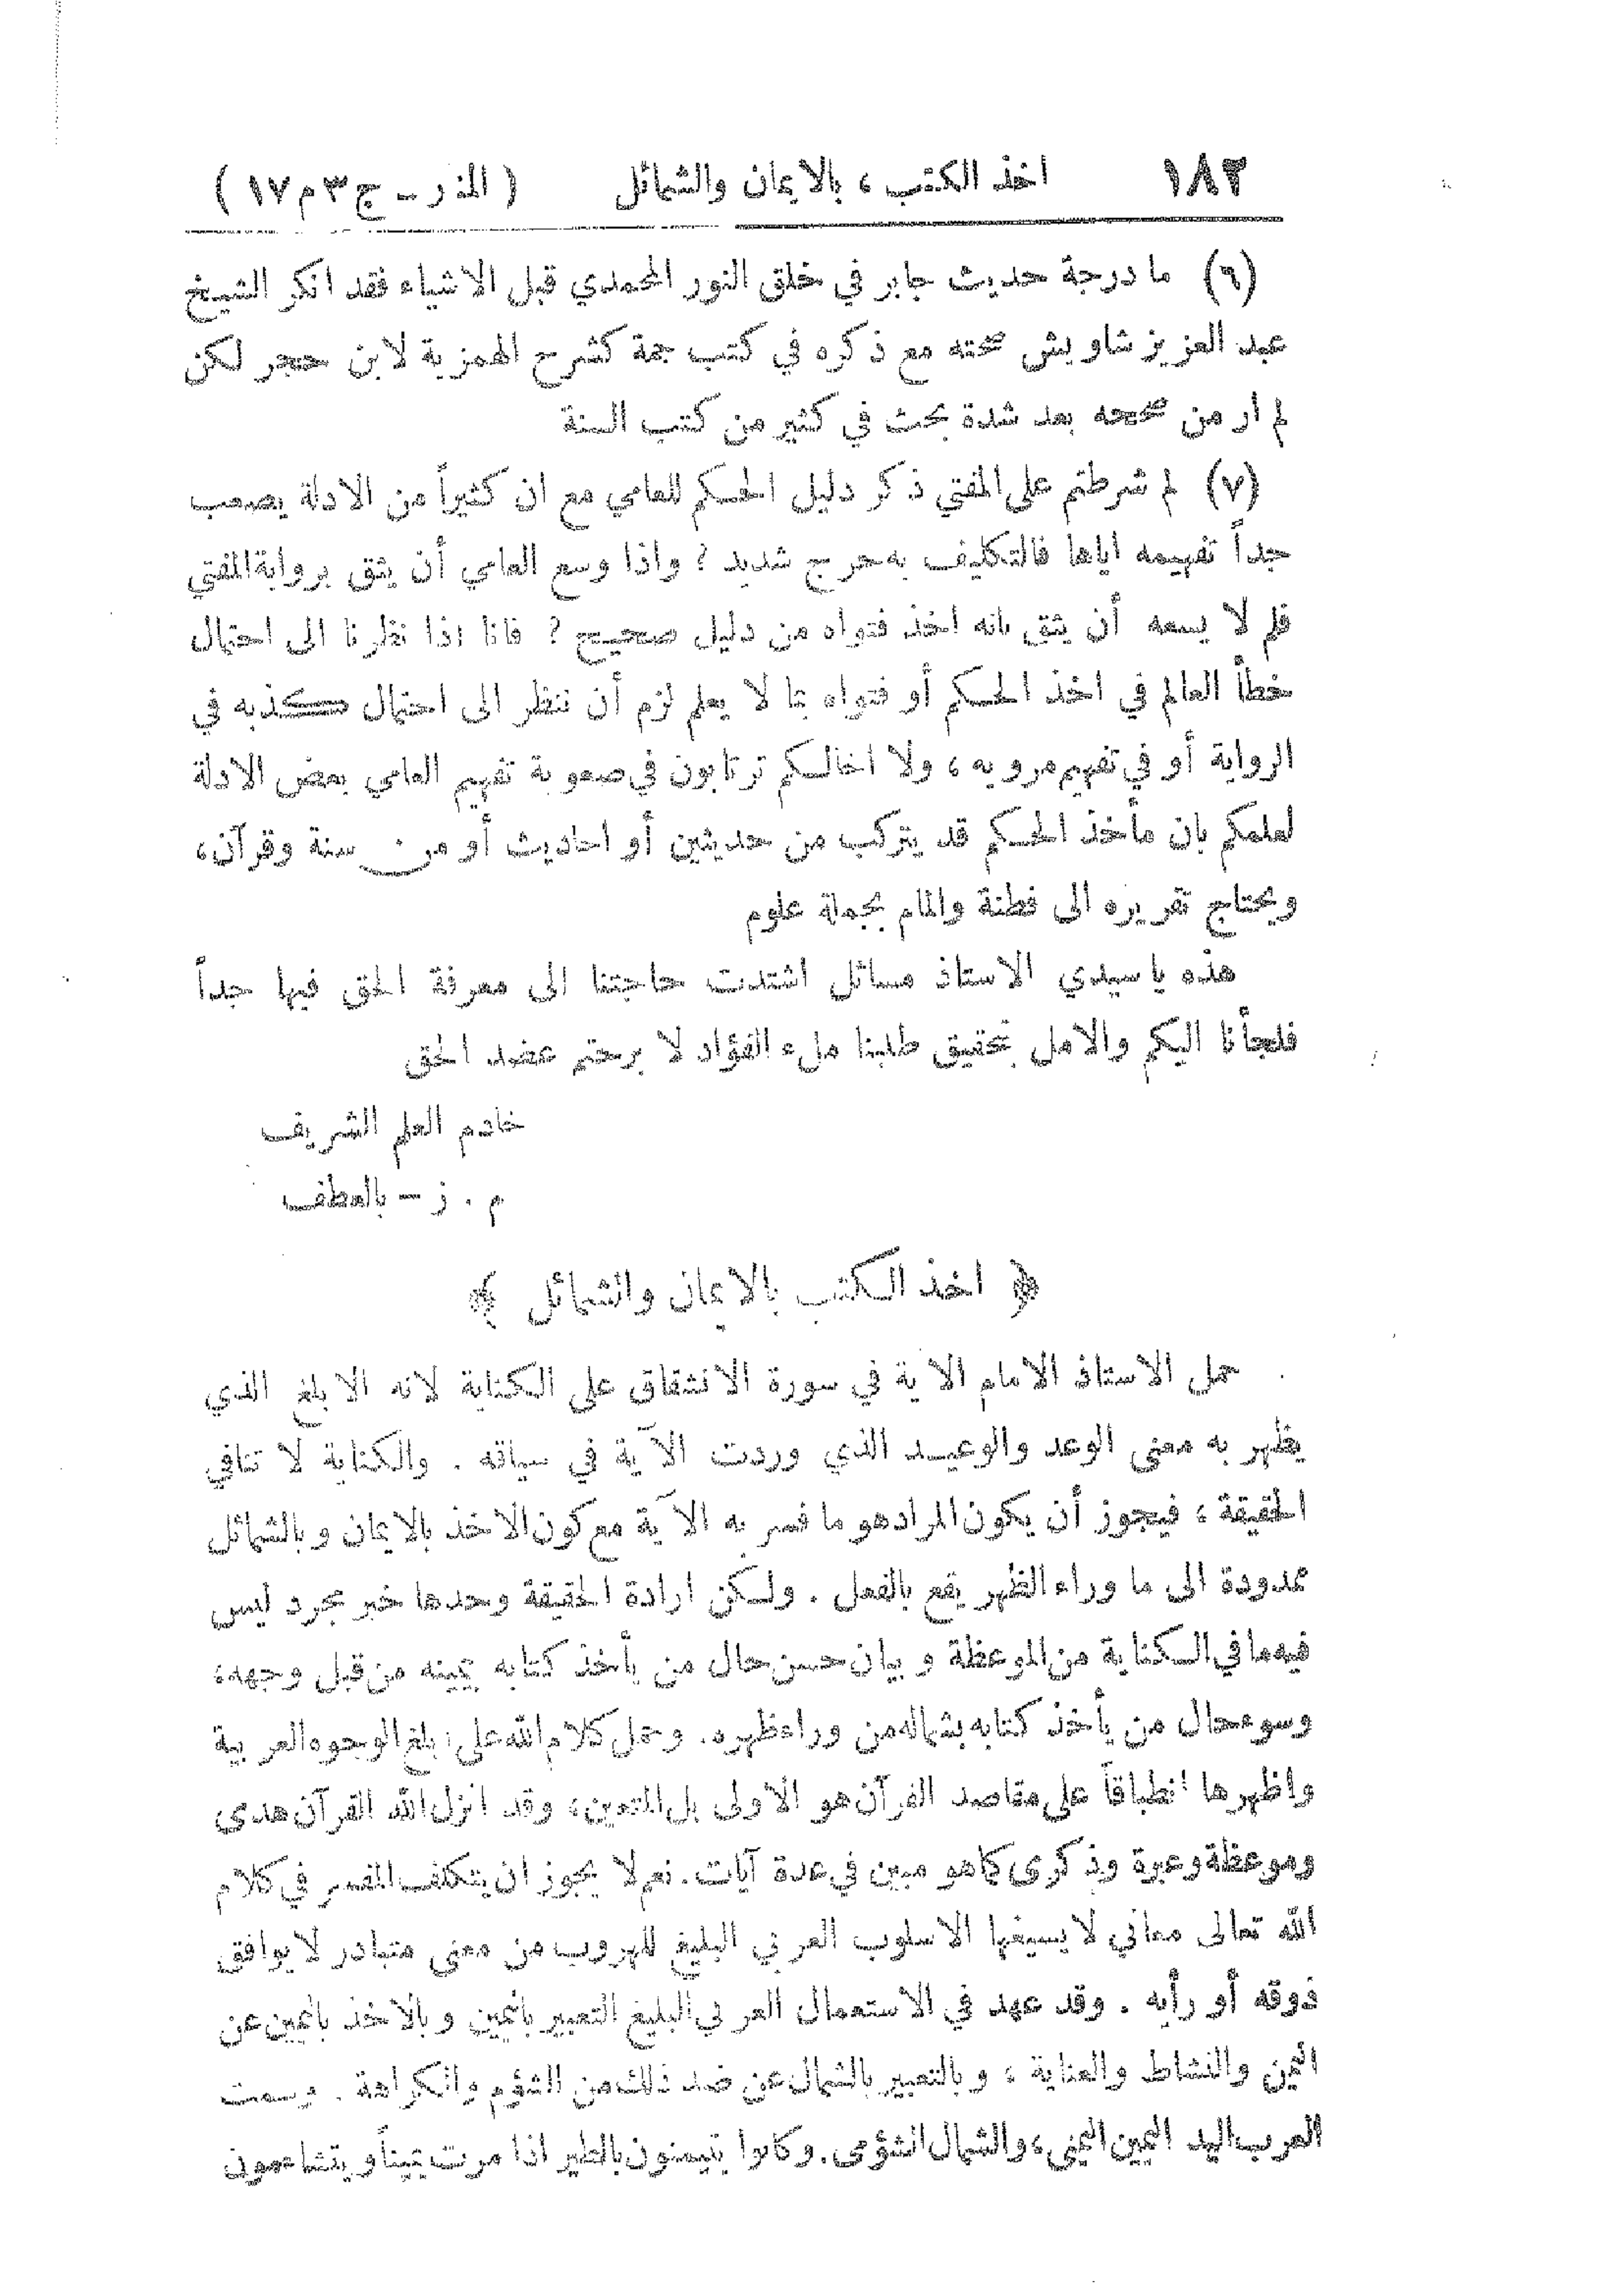 ١٨٢ اخذ الكتب، بالايمان والشمائل ( المنار ـ ج ٣ م ١٧ )
(٦) ما درجة حديث جابر في خلق النور المحمدي قبل الاشياء فقد انكر الشيخ
عبد العزيز شاويش صحته مع ذكره في كتب جمة كشرح الهمزية لابن حجر لكن
لم ار من صححه بعد شدة بحث في كثير من كتب السنة
(٧) لم شرطتم على المفتي ذكر دليل الحكم للعامي مع ان كثيراً من الادلة يصعب
جداً تفهيمه اياها فالتكليف به حرج شديد ؟ واذا وسع العامي أن يثق برواية المفتي
فلم لا يسعه أن يثق بانه اخذ فتواه من دليل صحيح ؟ فانا اذا نظرنا الى احتمال
خطأ العالم في اخذ الحكم أو فتواه بما لا يعلم لزم أن ننظر الى احتمال كذبه في
الرواية أو في تفهيم مرويه ، ولا اخالكم ترتابون في صعوبة تفهيم العامي بعض الادلة
لعلمكم بان مأخذ الحكم قد يتركب من حديثين أو احاديث أو من سنة وقرآن،
ويحتاج تقريره الى فطنة والمام بجملة علوم
هذه يا سيدي الاستاذ مسائل اشتدت حاجتنا الى معرفة الحق فيها جداً
فلجأنا اليكم والامل بتحقيق طلبنا ملء الفؤاد لا برحتم عضد الحق
خادم العلم الشريف
م . ز – بالعطف
﴿ اخذ الكتب بالايمان والشمائل ﴾
حمل الاستاذ الامام الآية في سورة الانشقاق على الكناية لانه الابلغ الذي
يظهر به معنى الوعد والوعيد الذي وردت الآية في سياقه . والكناية لا تنافي
الحقيقة ، فيجوز أن يكون المراد هو ما فسر به الآية مع كون الاخذ بالايمان وبالشمائل
ممدودة الى ما وراء الظهر يقع بالفعل . ولكن ارادة الحقيقة وحدها خبر مجرد ليس
فيه ما في الكناية من الموعظة وبيان حسن حال من يأخذ كتابه بيمينه من قبل وجهه،
وسوء حال من يأخذ كتابه بشماله من وراء ظهره. وحمل كلام الله على ابلغ الوجوه العربية
واظهرها انطباقاً على مقاصد القرآن هو الاولى بل المتعين، وقد انزل الله القرآن هدى
وموعظة وعبرة وذكرى كما هو مبين في عدة آيات. نعم لا يجوز ان يتكلف المفسر في كلام
الله تعالى معاني لا يسيغها الاسلوب العربي البليغ للهروب من معنى متبادر لا يوافق
ذوقه أو رأيه . وقد عهد في الاستعمال العربي البليغ التعبير باليمين وبالاخذ باليمين عن
اليمن والنشاط والعناية ، وبالتعبير بالشمال عن ضد ذلك من الشؤم والكراهة . وسمت
العرب اليد اليمين اليمنى، والشمال الشؤمى. وكانوا يتيمنون بالطير اذا مرت يميناً ويتشاءمون